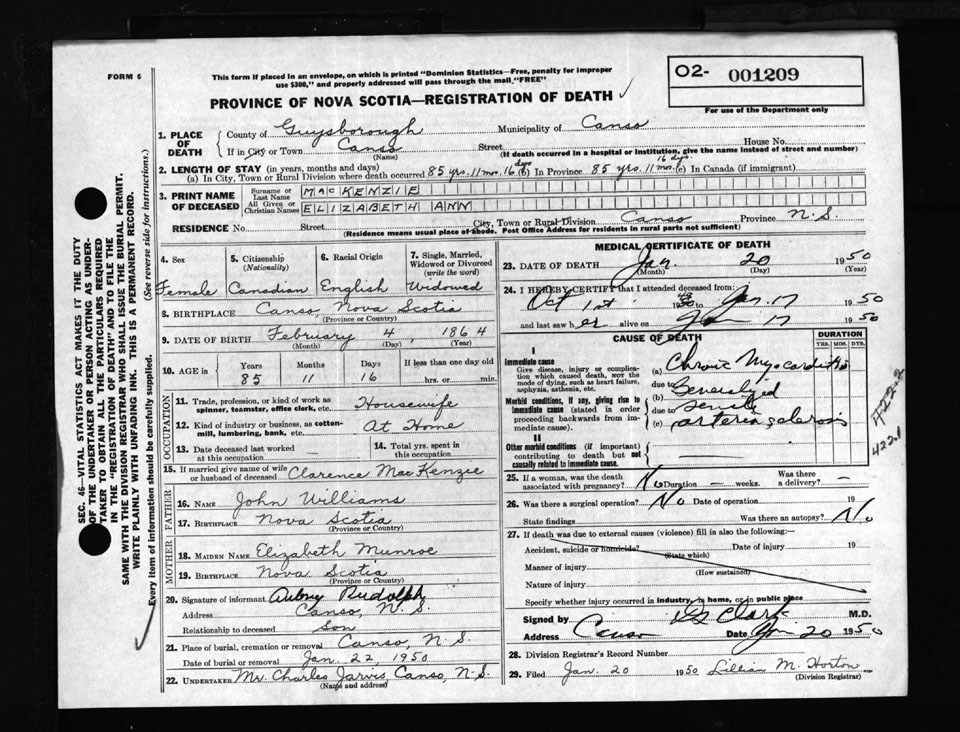 FORM 6
This form if placed in an envelope, on which is printed "Dominion Statistics—Free, penalty for improper
use $300," and properly addressed will pass through the mail "FREE"
PROVINCE OF NOVA SCOTIA—REGISTRATION OF DEATH ✓
02- 001209
For use of the Department only
1. PLACE OF DEATH
County of Guysborough Municipality of Canso
If in City or Town Canso Street House No.
(Name) (If death occurred in a hospital or institution, give the name instead of street and number)
2. LENGTH OF STAY (in years, months and days)
(a) In City, Town or Rural Division where death occurred 85 yrs. 11 mos. 16 dys (b) In Province 85 yrs. 11 mos. 16 dys. (c) In Canada (if immigrant)
3. PRINT NAME OF DECEASED
Surname or Last Name MACKENZIE
All Given or Christian Names ELIZABETH ANN
RESIDENCE No. Street City, Town or Rural Division Canso Province N.S.
(Residence means usual place of abode. Post Office Address for residents in rural parts not sufficient)
4. Sex Female
5. Citizenship (Nationality) Canadian
6. Racial Origin English
7. Single, Married, Widowed or Divorced (write the word) Widowed
8. BIRTHPLACE Canso, Nova Scotia
(Province or Country)
9. DATE OF BIRTH February 4 1864
(Month) (Day) (Year)
10. AGE in Years Months Days If less than one day old
85 11 16 hrs. or min.
OCCUPATION
11. Trade, profession, or kind of work as spinner, teamster, office clerk, etc. Housewife
12. Kind of industry or business, as cotton-mill, lumbering, bank, etc. At Home
13. Date deceased last worked at this occupation —
14. Total yrs. spent in this occupation
15. If married give name of wife or husband of deceased Clarence MacKenzie
FATHER
16. NAME John Williams
17. BIRTHPLACE Nova Scotia
(Province or Country)
MOTHER
18. MAIDEN NAME Elizabeth Munroe
19. BIRTHPLACE Nova Scotia
(Province or Country)
20. Signature of informant Aubrey Rudolph
Address Canso, N.S.
Relationship to deceased Son
21. Place of burial, cremation or removal Canso, N.S.
Date of burial or removal Jan. 22, 1950
22. UNDERTAKER Mr. Charles Jarvis, Canso, N.S.
(Name and address)
MEDICAL CERTIFICATE OF DEATH
23. DATE OF DEATH Jan. 20 1950
(Month) (Day) (Year)
24. I HEREBY CERTIFY that I attended deceased from:
Oct 1st 49 to Jan 17 1950
and last saw her alive on Jan 17 1950
CAUSE OF DEATH
DURATION
YRS. MOS. DYS.
I
Immediate cause
Give disease, injury or complication which caused death, not the mode of dying, such as heart failure, asphyxia, asthenia, etc.
(a) Chronic Myocarditis
due to
Morbid conditions, if any, giving rise to immediate cause (stated in order proceeding backwards from immediate cause).
(b) Generalized
due to senile
(c) arteriosclerosis
II
Other morbid conditions (if important) contributing to death but not causally related to immediate cause.
422-2
422.1
25. If a woman, was the death associated with pregnancy? No Duration — weeks. Was there a delivery? —
26. Was there a surgical operation? No Date of operation 19
State findings Was there an autopsy? No
27. If death was due to external causes (violence) fill in also the following:—
Accident, suicide or homicide? Date of injury 19
(State which)
Manner of injury
(How sustained)
Nature of injury
Specify whether injury occurred in industry, in home, or in public place
Signed by Clark M.D.
Address Canso Date Jan 20 1950
28. Division Registrar's Record Number
29. Filed Jan. 20 1950 Lillian M. Horton
(Division Registrar)
SEC. 46—VITAL STATISTICS ACT MAKES IT THE DUTY
OF THE UNDERTAKER OR PERSON ACTING AS UNDER-
TAKER TO OBTAIN ALL THE PARTICULARS REQUIRED
IN THE "REGISTRATION OF DEATH" AND TO FILE THE
SAME WITH THE DIVISION REGISTRAR WHO SHALL ISSUE THE BURIAL PERMIT.
WRITE PLAINLY WITH UNFADING INK. THIS IS A PERMANENT RECORD.
Every item of information should be carefully supplied. (See reverse side for instructions.)